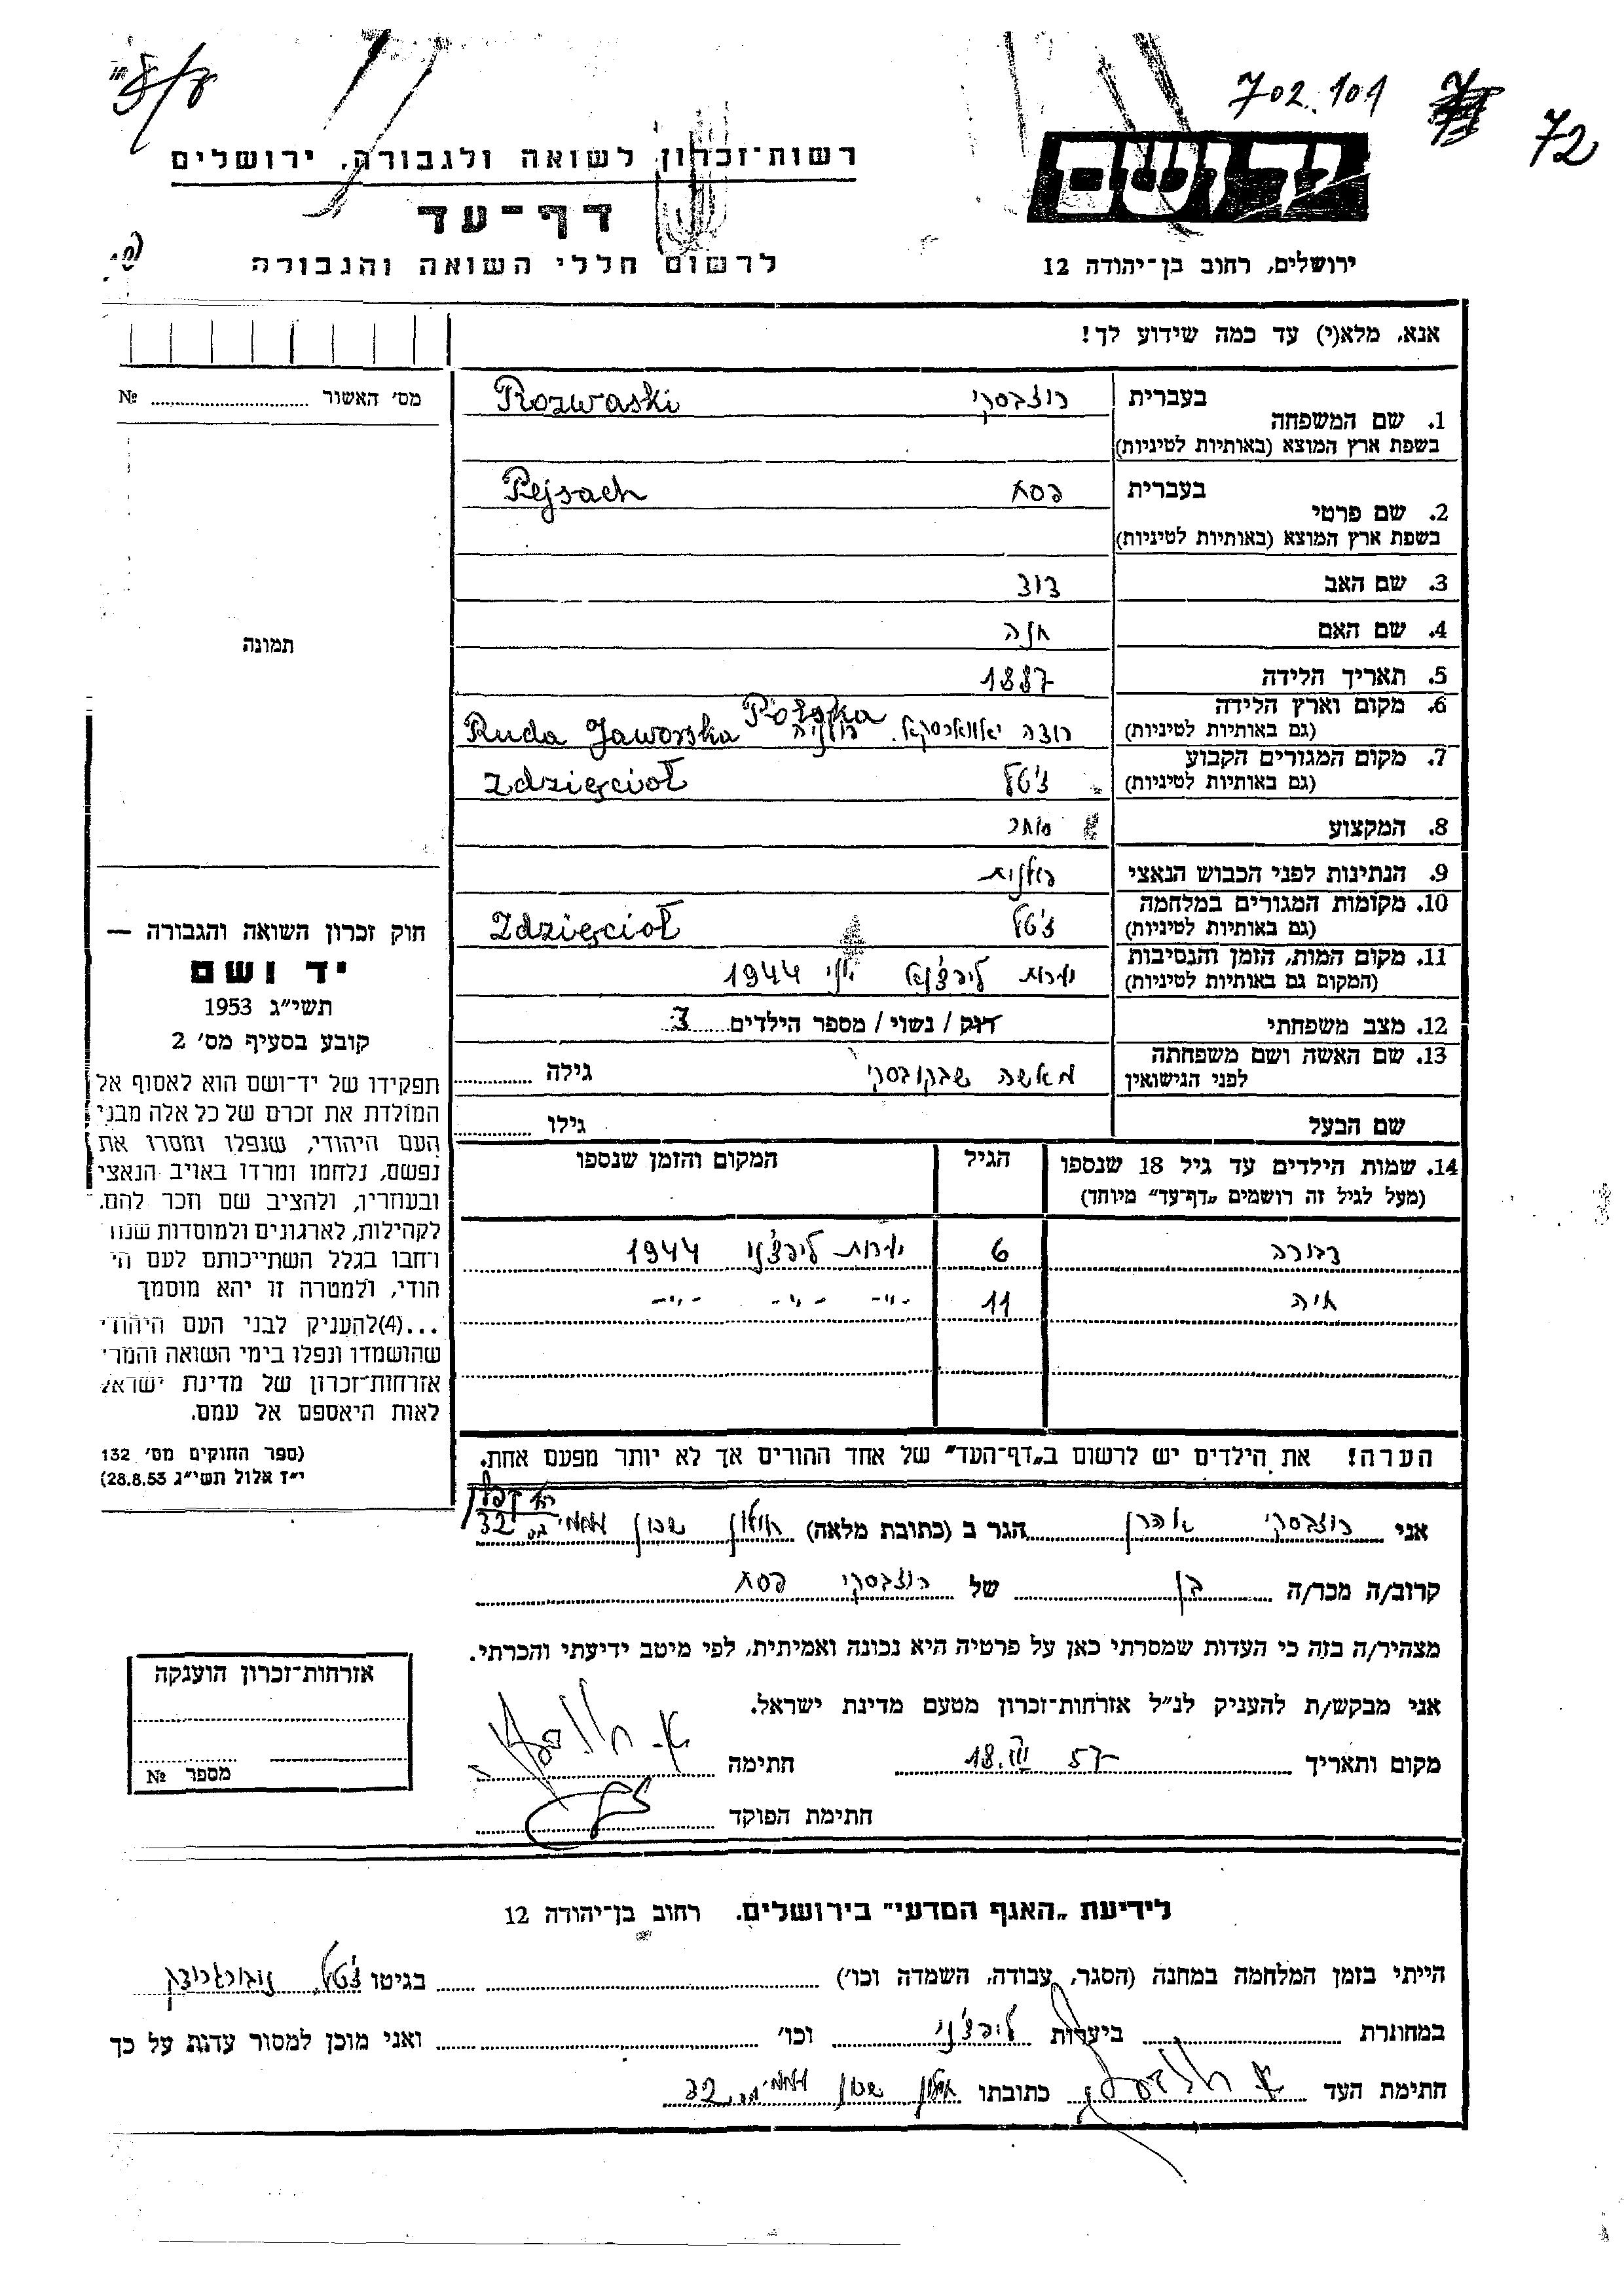 702.101
72
רשות־זכרון לשואה ולגבורה. ירושלים
יד ושם
דף־עד
לרשום חללי השואה והגבורה
ירושלים, רחוב בן־יהודה 12
אנא, מלא(י) עד כמה שידוע לך!
מס' האשור № 
1. שם המשפחה בעברית רוזבסקי Rozwaski
בשפת ארץ המוצא (באותיות לטיניות)
2. שם פרטי בעברית פסח Pejsach
בשפת ארץ המוצא (באותיות לטיניות)
3. שם האב דוד
4. שם האם חנה
תמונה
5. תאריך הלידה 1887
6. מקום וארץ הלידה רודה יאווארסקא. פולניה Ruda Jaworska Polska
(גם באותיות לטיניות)
7. מקום המגורים הקבוע ז'טל Zdzięcioł
(גם באותיות לטיניות)
8. המקצוע סוחר
9. הנתינות לפני הכבוש הנאצי פולנית
10. מקומות המגורים במלחמה ז'טל Zdzięcioł
(גם באותיות לטיניות)
11. מקום המות, הזמן והנסיבות יערות ליפצ'נקא יוני 1944
(המקום גם באותיות לטיניות)
12. מצב משפחתי רווק / נשוי / מספר הילדים 3
13. שם האשה ושם משפחתה לפני הנישואין מאשה שבקובסקי גילה
שם הבעל גילו
14. שמות הילדים עד גיל 18 שנספו הגיל המקום והזמן שנספו
(מעל לגיל זה רושמים „דף־עד” מיוחד)
דבורה 6 יערות ליפצ'ני 1944
חיה 11 -"- -"- -"-
הערה! את הילדים יש לרשום ב„דף־העד” של אחד ההורים אך לא יותר מפעם אחת.
חוק זכרון השואה והגבורה —
יד ושם
תשי״ג 1953
קובע בסעיף מס' 2
תפקידו של יד־ושם הוא לאסוף אל
המולדת את זכרם של כל אלה מבני
העם היהודי, שנפלו ומסרו את
נפשם, נלחמו ומרדו באויב הנאצי
ובעוזריו, ולהציב שם וזכר להם,
לקהילות, לארגונים ולמוסדות שנח
רחבו בגלל השתייכותם לעם הי
הודי, ולמטרה זו יהא מוסמך
...(4)להעניק לבני העם היהודי
שהושמדו ונפלו בימי השואה והמרי
אזרחות־זכרון של מדינת ישראל
לאות היאספם אל עמם.
(ספר החוקים מס' 132
י״ז אלול תשי״ג 28.8.53)
אני רוזבסקי אהרן הגר ב (כתובת מלאה) חולון שכון 32
קרוב/ה מכר/ה בן של רוזבסקי פסח
מצהיר/ה בזה כי העדות שמסרתי כאן על פרטיה היא נכונה ואמיתית, לפי מיטב ידיעתי והכרתי.
אני מבקש/ת להעניק לנ״ל אזרחות־זכרון מטעם מדינת ישראל.
מקום ותאריך 57 18. חתימה
חתימת הפוקד
אזרחות־זכרון הוענקה
מספר №
לידיעת „האגף המדעי” בירושלים. רחוב בן־יהודה 12
הייתי בזמן המלחמה במחנה (הסגר, עבודה, השמדה וכו') בגיטו ז'טל, נובוגרודק
במחתרת ביערות ליפצ'ני וכו' ואני מוכן למסור עדות על כך
חתימת העד כתובתו חולון שכון 32